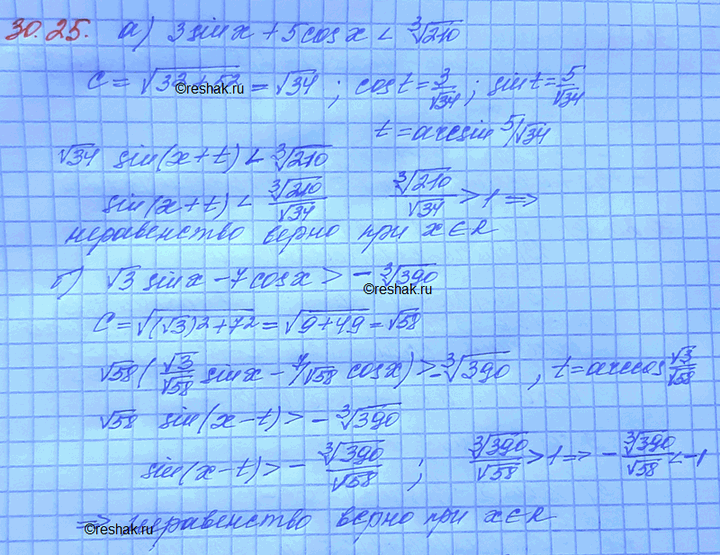 30.25. а) 3 sin x + 5 cos x < ∛210
C = √(3² + 5²) = √34 ; cos t = 3/√34 ; sin t = 5/√34
reshak.ru
t = arcsin 5/√34
√34 sin(x+t) < ∛210
sin(x+t) < ∛210/√34 ∛210/√34 > 1 ⇒
неравенство верно при x ∈ R
б) √3 sin x − 7 cos x > −∛390
reshak.ru
C = √((√3)2 + 72) = √(9+49) = √58
√58 (√3/√58 sin x − 7/√58 cos x) > −∛390 , t = arccos √3/√58
√58 sin(x−t) > −∛390
sin(x−t) > −∛390/√58 ; ∛390/√58 > 1 ⇒ −∛390/√58 < −1
⇒ неравенство верно при x ∈ R
reshak.ru